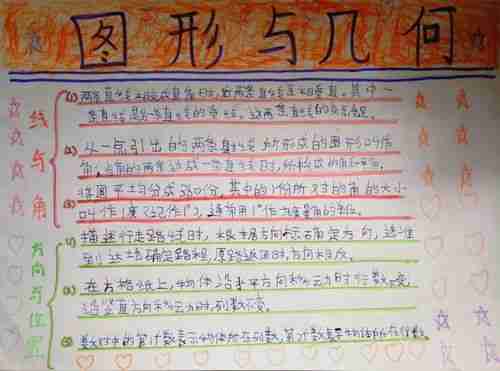 图形与几何
线与角
(1) 两条直线相交成直角时,这两条直线互相垂直。其中一
条直线是另一条直线的垂线,这两条直线的交点叫垂足。
(2) 从一点引出的两条射线所形成的图形叫作
角。当角的两条边成一条直线时,所形成的角叫平角。
(3) 将圆平均分成360份,其中的1份所对的角的大小
叫作1度(记作1°),通常用1°作为度量角的单位。
方向与位置
(1) 描述行走路线时,根据方向标确定方向,
方向相反。
(2) 在方格纸上,物体沿水平方向移动时行数不变,
沿竖直方向移动时,列数不变。
(3) 数对中的第一个数表示物体所在列数,第二个数表示物体所在行数。